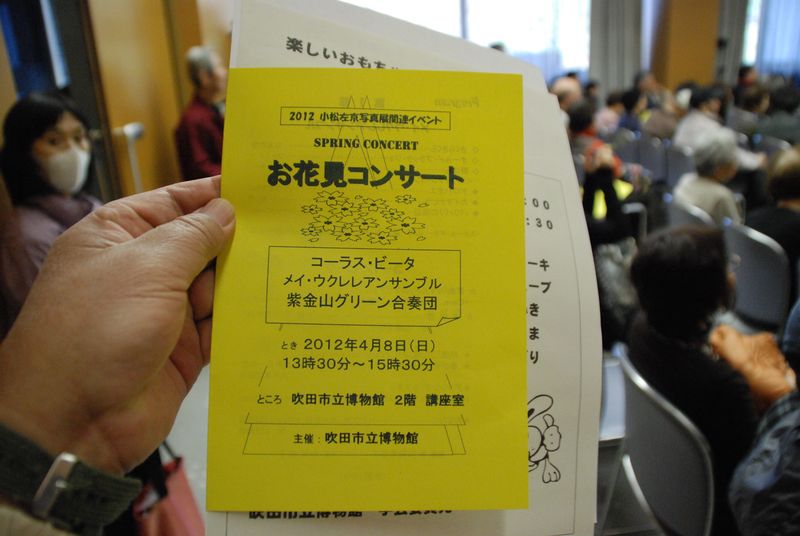 楽しいおもち
2012 小松左京写真展関連イベント
SPRING CONCERT
お花見コンサート
コーラス・ビータ
メイ・ウクレレアンサンブル
紫金山グリーン合奏団
とき 2012年4月8日(日)
13時30分～15時30分
ところ 吹田市立博物館 2階 講座室
主催：吹田市立博物館
:00
:30
ーキ
ープ
き
ま
り
吹田市立博物館